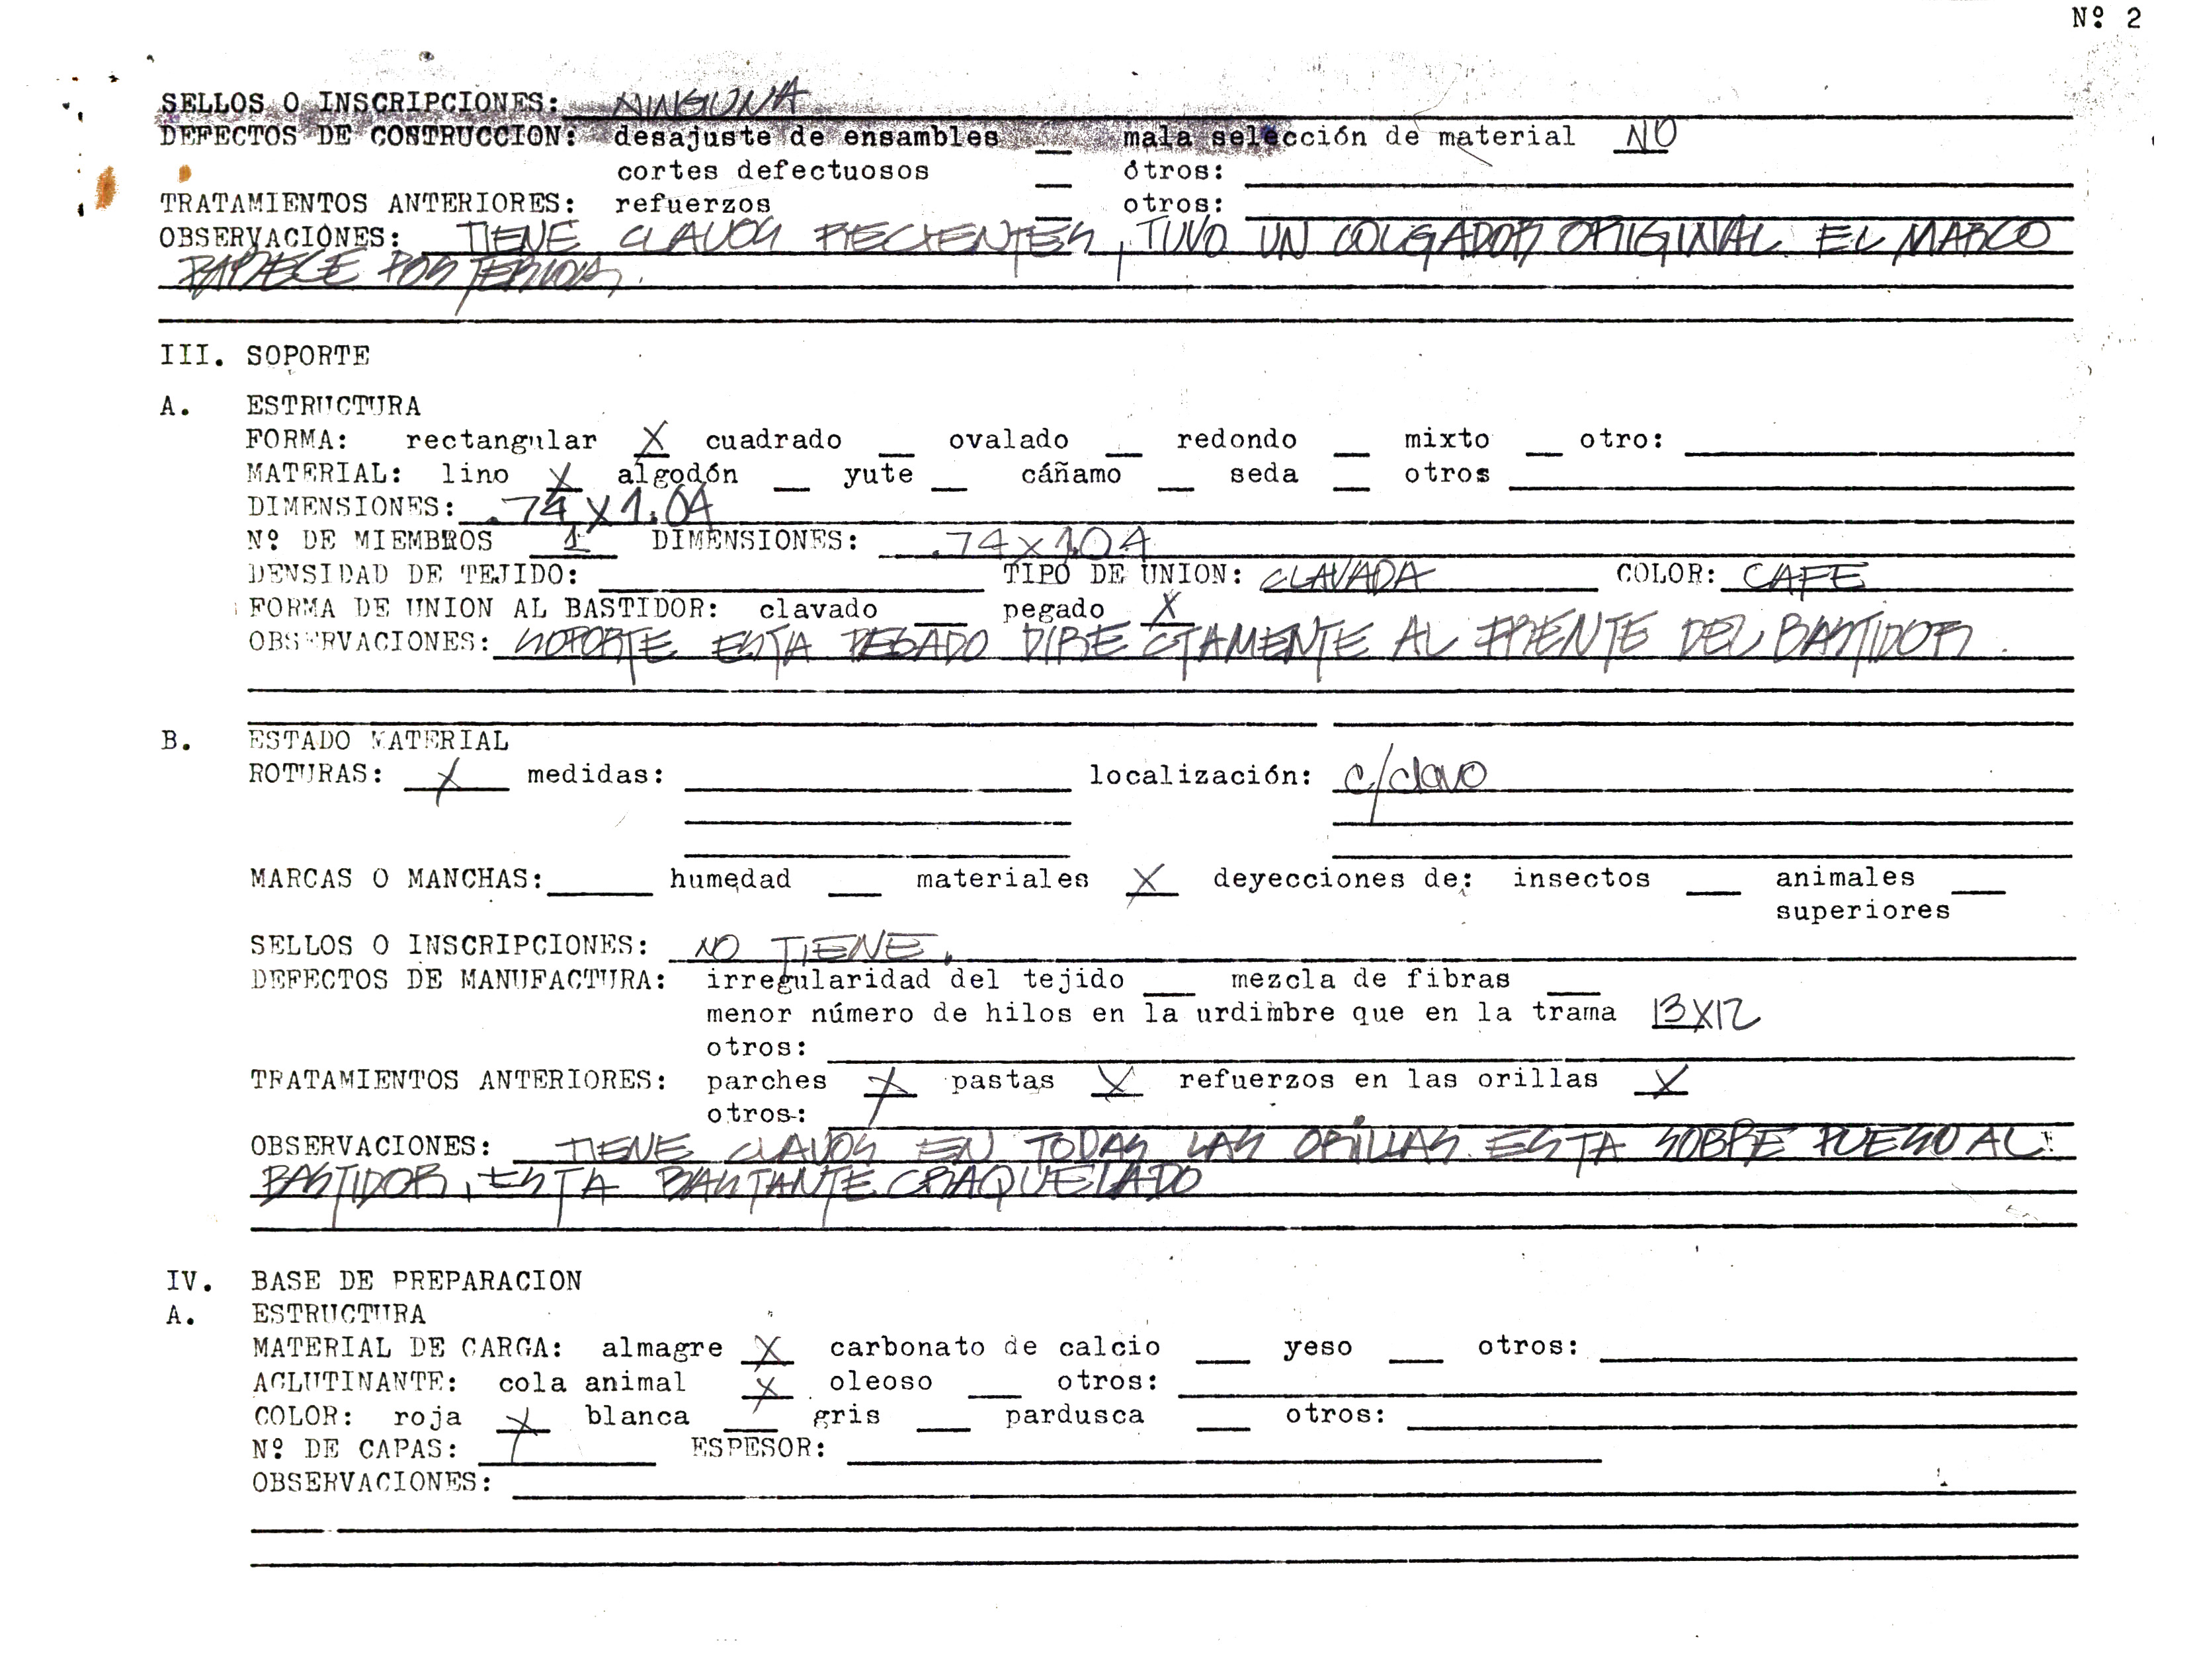 Nº 2
SELLOS O INSCRIPCIONES: NINGUNA
DEFECTOS DE COSTRUCCION: desajuste de ensambles __ mala selección de material NO
cortes defectuosos __ ótros: ____
TRATAMIENTOS ANTERIORES: refuerzos __ otros: ____
OBSERVACIÓNES: TIENE CLAVOS RECIENTES, TUVO UN COLGADOR ORIGINAL EL MARCO
PARECE POSTERIOR.
III. SOPORTE
A. ESTRUCTURA
FORMA: rectangular X cuadrado __ ovalado __ redondo __ mixto __ otro: ____
MATERIAL: lino X algodón __ yute __ cáñamo __ seda __ otros ____
DIMENSIONES: .74 X 1.04
Nº DE MIEMBROS 1 DIMENSIONES: .74 x 1.04
DENSIDAD DE TEJIDO: ____ TIPO DE UNION: CLAVADA COLOR: CAFE
FORMA DE UNION AL BASTIDOR: clavado __ pegado X
OBSERVACIONES: SOPORTE ESTA PEGADO DIRECTAMENTE AL FRENTE DEL BASTIDOR.
B. ESTADO MATERIAL
ROTURAS: X medidas: ____ localización: c/clavo
MARCAS O MANCHAS: ____ humedad __ materiales X deyecciones de: insectos __ animales __
superiores
SELLOS O INSCRIPCIONES: NO TIENE.
DEFECTOS DE MANUFACTURA: irregularidad del tejido __ mezcla de fibras __
menor número de hilos en la urdimbre que en la trama 13X12
otros: ____
TRATAMIENTOS ANTERIORES: parches X pastas X refuerzos en las orillas X
otros: ____
OBSERVACIONES: TIENE CLAVOS EN TODAS LAS ORILLAS ESTA SOBRE PUESO AL
BASTIDOR, ESTA BASTANTE CRAQUELADO
IV. BASE DE PREPARACION
A. ESTRUCTURA
MATERIAL DE CARGA: almagre X carbonato de calcio __ yeso __ otros: ____
AGLUTINANTE: cola animal X oleoso __ otros: ____
COLOR: roja X blanca __ gris __ pardusca __ otros: ____
Nº DE CAPAS: ____ ESPESOR: ____
OBSERVACIONES: ____